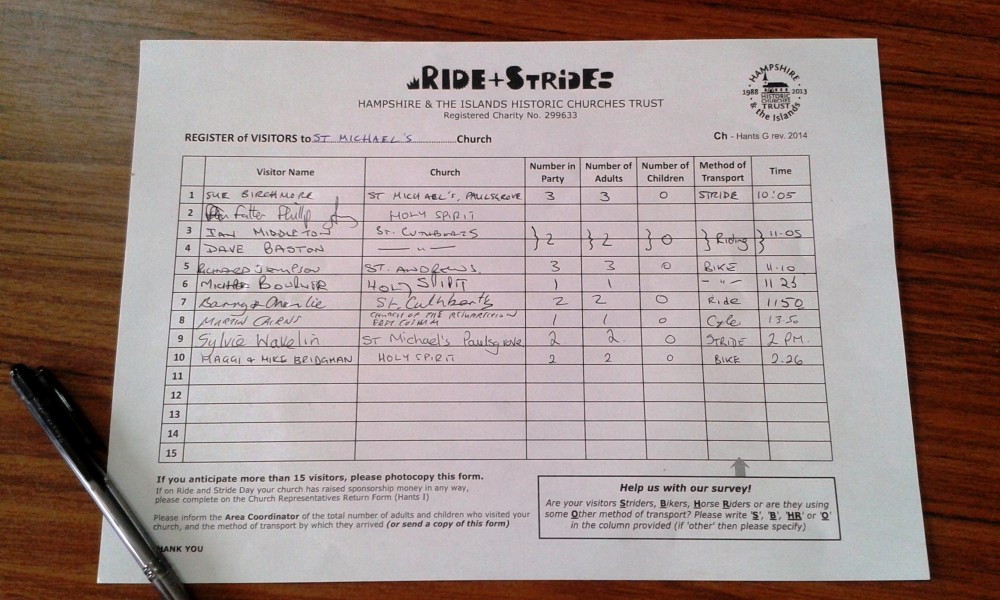 RIDE+STRIDE
HAMPSHIRE & THE ISLANDS HISTORIC CHURCHES TRUST
Registered Charity No. 299633
HAMPSHIRE & the Islands
1988 HISTORIC CHURCHES TRUST 2013
REGISTER of VISITORS to ST MICHAEL'S Church
Ch - Hants G rev. 2014
Visitor Name Church Number in Party Number of Adults Number of Children Method of Transport Time
1 SUE BIRCHMORE ST MICHAEL'S, PAULSGROVE 3 3 0 STRIDE 10:05
2 Father Phillip HOLY SPIRIT
3 IAN MIDDLETON ST. CUTHBERTS } 2 } 2 } 0 } Riding } 11-05
4 DAVE BASTON — " —
5 RICHARD ST. ANDREWS. 3 3 0 BIKE 11.10
6 HOLY SPIRIT 1 1 - " - 11 25
7 Barry & Charlie St. Cuthberts 2 2 0 Ride 1150
8 MARTIN CAIRNS CHURCH OF THE RESURRECTION EAST COSHAM 1 1 0 Cycle 13.50
9 Sylvia Wavelin ST Michael's Paulsgrove 2 2. 0 STRIDE 2 PM.
10 MAGGI & MIKE BRIDGMAN HOLY SPIRIT 2 2 0 BIKE 2.26
11
12
13
14
15
If you anticipate more than 15 visitors, please photocopy this form.
If on Ride and Stride Day your church has raised sponsorship money in any way,
please complete on the Church Representatives Return Form (Hants I)
Please inform the Area Coordinator of the total number of adults and children who visited your
church, and the method of transport by which they arrived (or send a copy of this form)
HANK YOU
Help us with our survey!
Are your visitors Striders, Bikers, Horse Riders or are they using
some Other method of transport? Please write 'S', 'B', 'HR' or 'O'
in the column provided (if 'other' then please specify)